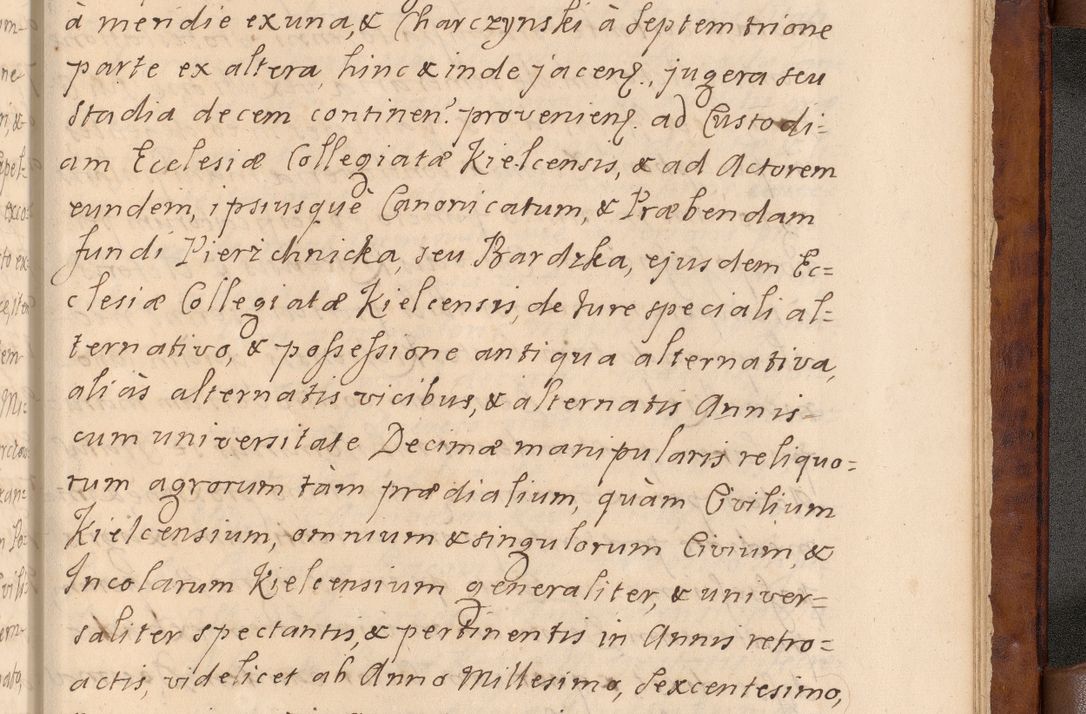 à meridie ex una, & Charczynski à Septemtrione
parte ex altera, hinc & inde jacen., jugera seu
Stadia decem continen. provenien. ad Custodi=
am Ecclesiæ Collegiatæ Kielcensis, & ad Actorem
eundem, ipsiusquè Canonicatum, & Præbendam
fundi Pierzchnicka, seu Bardzka, ejusdem Ec=
clesiæ Collegiatæ Kielcensis, de Iure speciali al=
ternativo, & possessione antiqua alternativa,
aliàs alternatis vicibus, & alternatis Annis
cum universitate Decimæ manipularis reliquo=
rum agrorum tàm prædialium, quàm Civilium
Kielcensium, omnium & singulorum Civium, &
Incolarum Kielcensium generaliter, & univer=
saliter spectantis, & pertinentis in Annis retro=
actis, videlicet ab Anno Millesimo, Sexcentesimo,